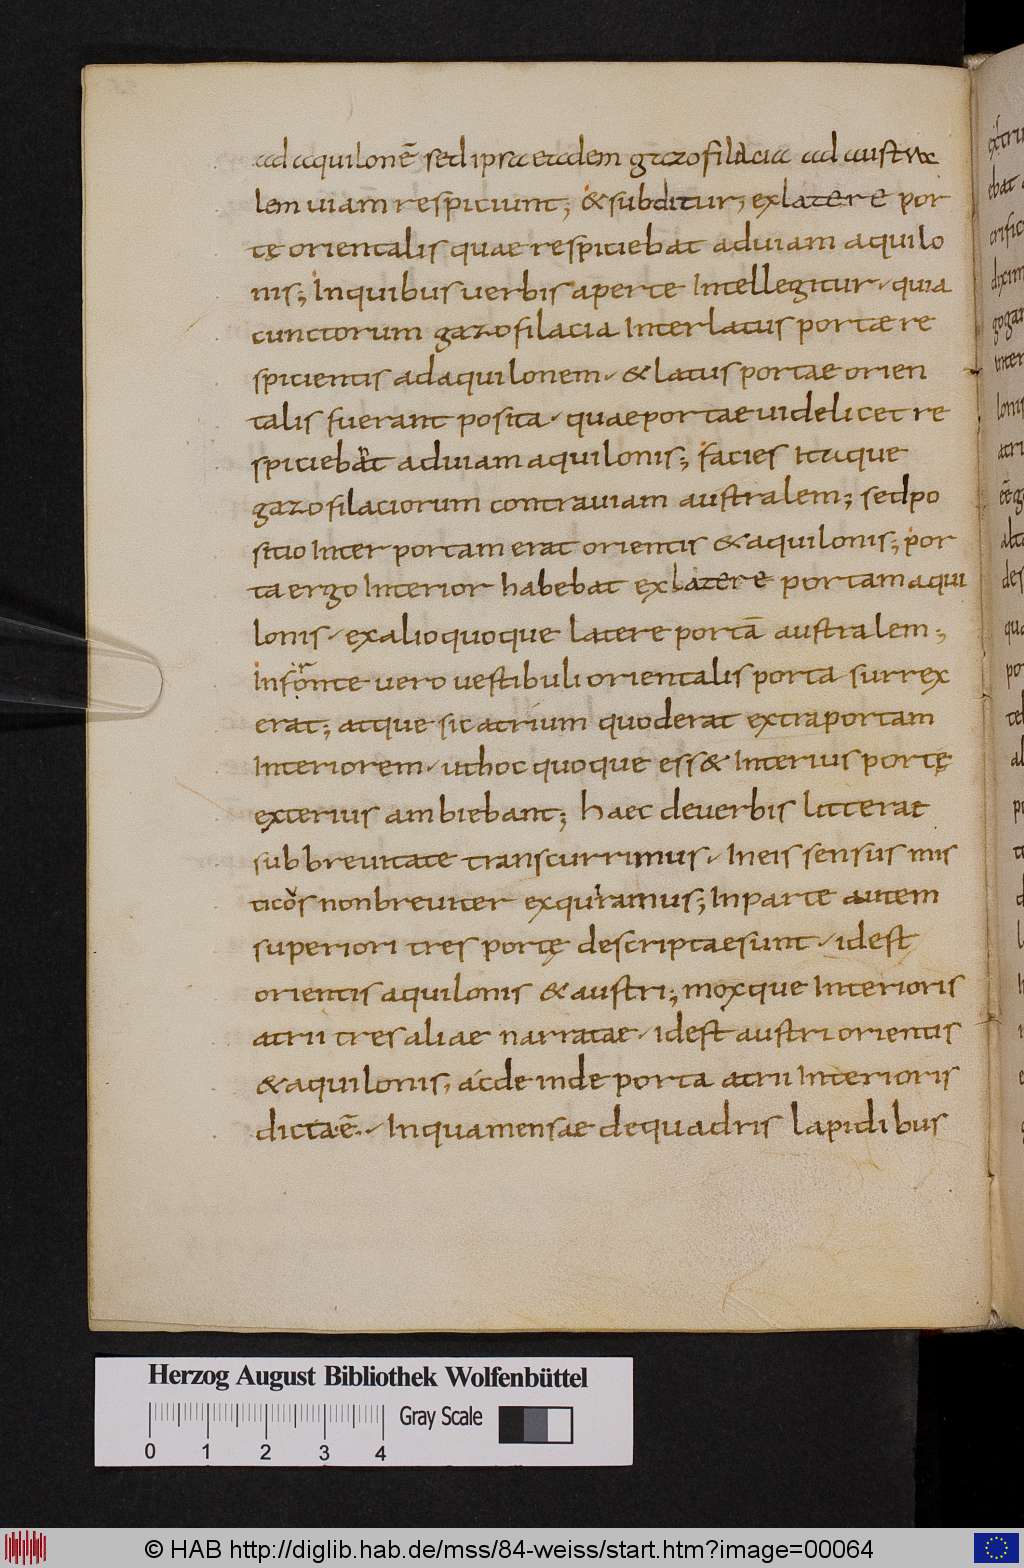 ad aquilonē sed ipsa eadem gazofilacia ad austra
lem uiam respiciunt; & subditur; ex latere por
tę orientalis quae respiciebat ad uiam aquilo
nis; In quibus uerbis aperte Intellegitur quia
cunctorum gazofilacia Inter latus portae re
spicientis ad aquilonem & latus portae orien
talis fuerant posita quae portae uidelicet re
spiciebat ad uiam aquilonis; facies Itaque
gazofilaciorum contra uiam australem; sed po
sitio Inter portam erat orientis & aquilonis; por
ta ergo Interior habebat ex latere portam aqui
lonis ex alio quoque latere portā australem;
In fronte uero uestibuli orientalis porta surrex
erat; atque sic atrium quod erat extra portam
Interiorem ut hoc quoque ess& Interius portę
exterius ambiebant; haec de uerbis litterae
sub breuitate transcurrimus In eis sensus mis
ticos non breuiter exquiramus; In parte autem
superiori tres portę descriptae sunt idest
orientis aquilonis & austri; moxque Interioris
atrii tres aliae narratae idest austri orientis
& aquilonis, ac deinde porta atrii Interioris
dicta ē In qua mensae de quadris lapidibus
Herzog August Bibliothek Wolfenbüttel
Gray Scale
0 1 2 3 4
© HAB http://diglib.hab.de/mss/84-weiss/start.htm?image=00064